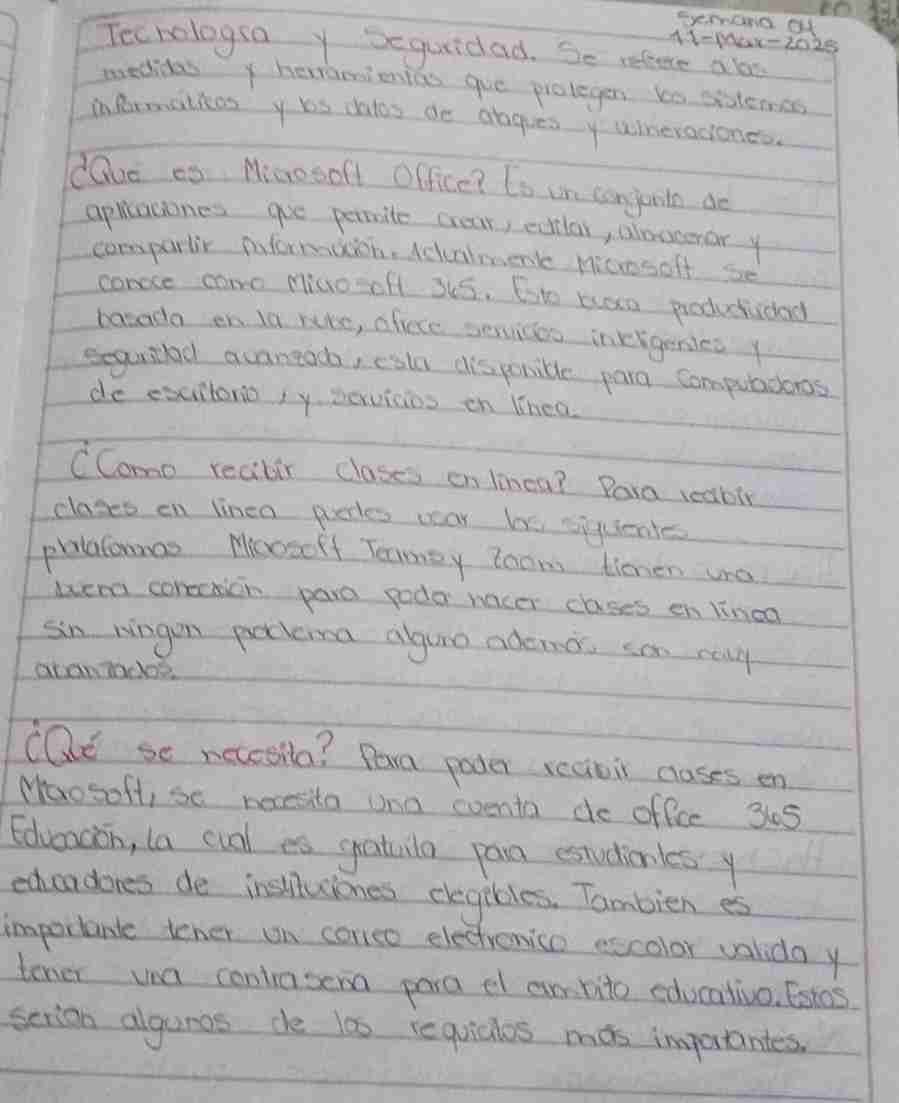 Semana 04
11-Mar-2025
Tecnologia y Seguridad. Se refiere a las
medidas y herramientas que protegen los sistemas
informaticos y los datos de ataques y vulneraciones.
¿Qué es Microsoft Office? Es un conjunto de
aplicaciones que permite crear, editar, almacenar y
compartir información. Actualmente Microsoft se
conoce como Microsoft 365. Esto busca productividad
basada en la nube, ofrece servicios inteligentes y
seguridad avanzada, esta disponible para computadoras
de escritorio, y servicios en línea.
¿Como recibir clases en linea? Para recibir
clases en linea puedes usar las siguientes
plataformas Microsoft Teams y Zoom tienen una
buena conección para poder hacer clases en línea
sin ningun problema alguno además son muy
avanzados.
¿Qué se necesita? Para poder recibir clases en
Microsoft, se necesita una cuenta de office 365
Educación, la cual es gratuita para estudiantes y
educadores de instituciones elegibles. Tambien es
importante tener un correo electronico escolar valido y
tener una contraseña para el ambito educativo. Estos
serian algunos de los requicitos más importantes.